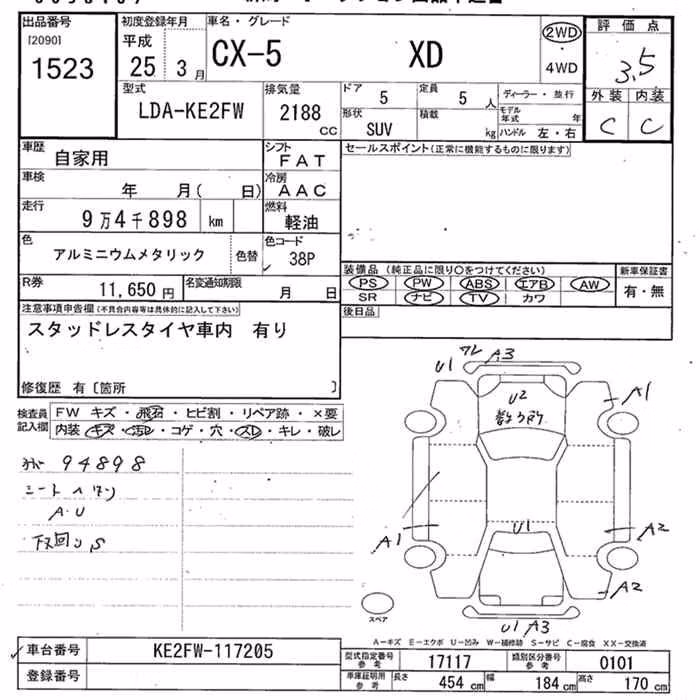 出品番号 初度登録年月 車名・グレード 2WD 評価点
[2090] 平成 CX-5 XD ・
1523 25 3月 4WD 3.5
型式 排気量 ドア 定員 ディーラー・並行 外装 内装
LDA-KE2FW 2188 cc 5 5人 モデル年式 年 C C
形状 積載
SUV kg ハンドル 左・右
車歴 自家用 シフト FAT セールスポイント(正常に機能するものに限ります)
車検 年 月( 日) 冷房 AAC
走行 9万4千898 km 燃料 軽油
色 アルミニウムメタリック 色替 色コード 38P
装備品 (純正品に限り○をつけてください) 新車保証書
R券 11,650円 名変通知期限 月 日 PS PW ABS エアB AW 有・無
SR ナビ TV カワ
注意事項申告欄(不具合内容等は具体的に記入して下さい) 後日品
スタッドレスタイヤ車内 有り
修復歴 有〔箇所 〕
検査員 FW キズ・飛石・ヒビ割・リペア跡・×要
記入欄 内装 キズ・汚レ・コゲ・穴・スレ・キレ・破レ
94898
A・U
下回りS
U1 ワレ A3
U2 A1
A1 U1 A2
A2
スペア
U1 A3
A-キズ E-エクボ U-凹み W-補修跡 S-サビ C-腐食 XX-交換済
車台番号 KE2FW-117205
型式指定番号 参考 17117 類別区分番号 参考 0101
登録番号
車庫証明用 参考 長さ 454cm 幅 184cm 高さ 170cm